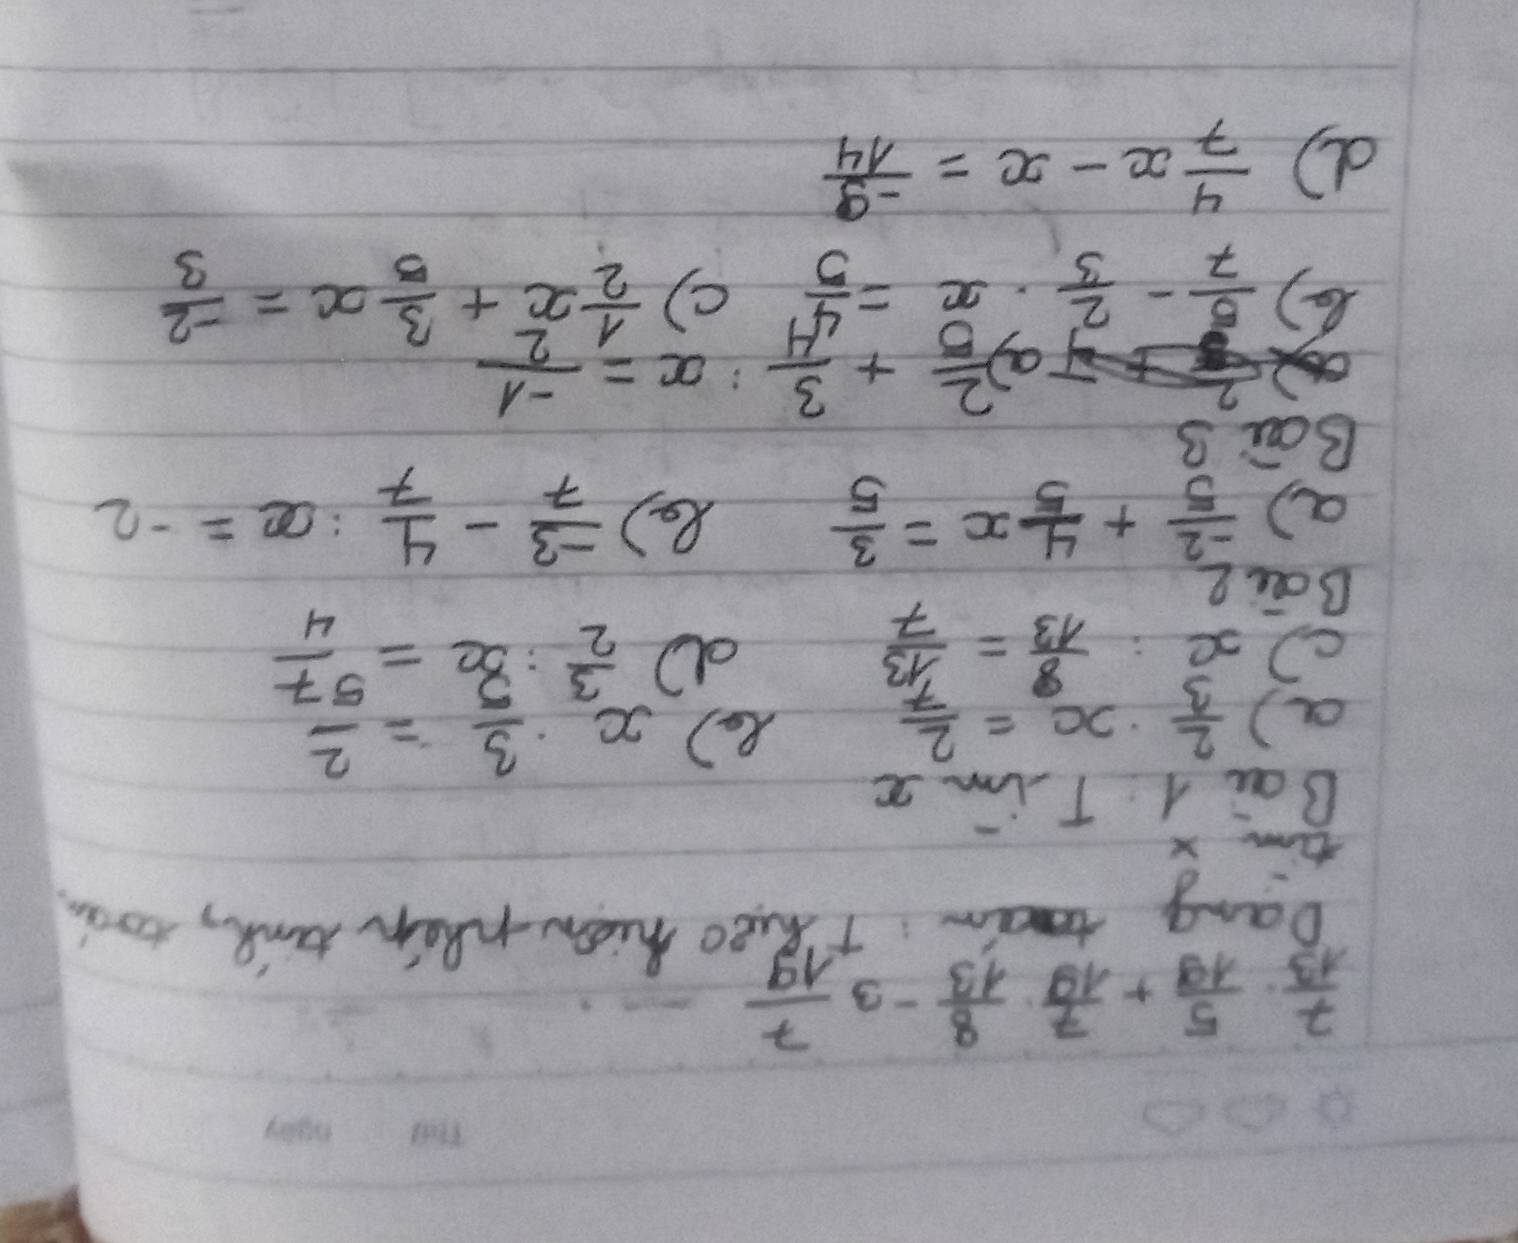 Thứ ngày
7/13 . 5/19 + 7/19 . 8/13 - 3 7/19
Dạng toán : Thực hiện phép tính, toán
tìm x
Bài 1 : Tìm x
a) 2/3 . x = 2/7 b) x . 3/5 = 2/5
c) x : 8/13 = 13/7 d) 3/2 : x = -7/4
Bài 2
a) -2/5 + 4/5 x = 3/5 b) -3/7 - 4/7 : x = -2
Bài 3
a) 2/5 + 3/4 : x = -1/2
b) 5/7 - 2/3 . x = 4/5 c) 1/2 x + 3/5 x = -2/3
d) 4/7 x - x = -9/14